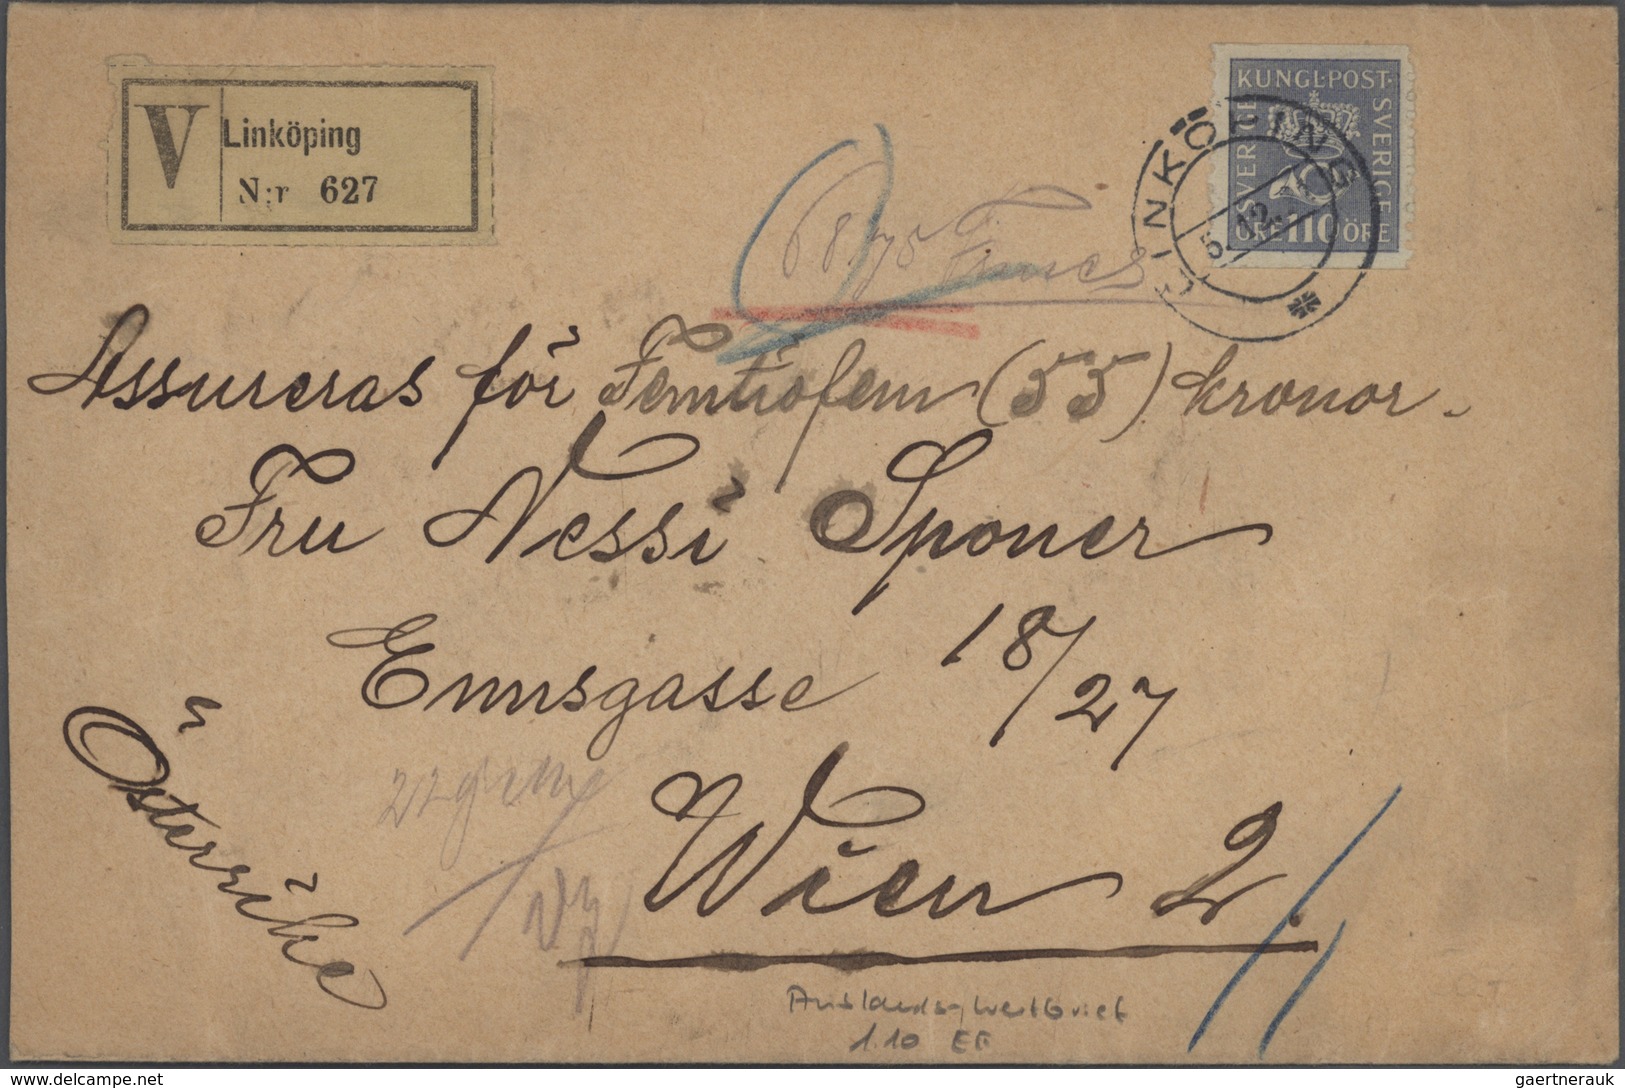 V Linköping
N:r 627
KUNGL·POST·
SVERIGE
SVERIGE
ÖRE 110 ÖRE
LINKÖPING
5.12
Assureras för Femtiofem (55) kronor.
Fru Nessi Sponer
Ennsgasse 18/27
Wien 2.
Österrike
Auslandswertbrief
1.10 EF
delcampe.net
gaertnerauk